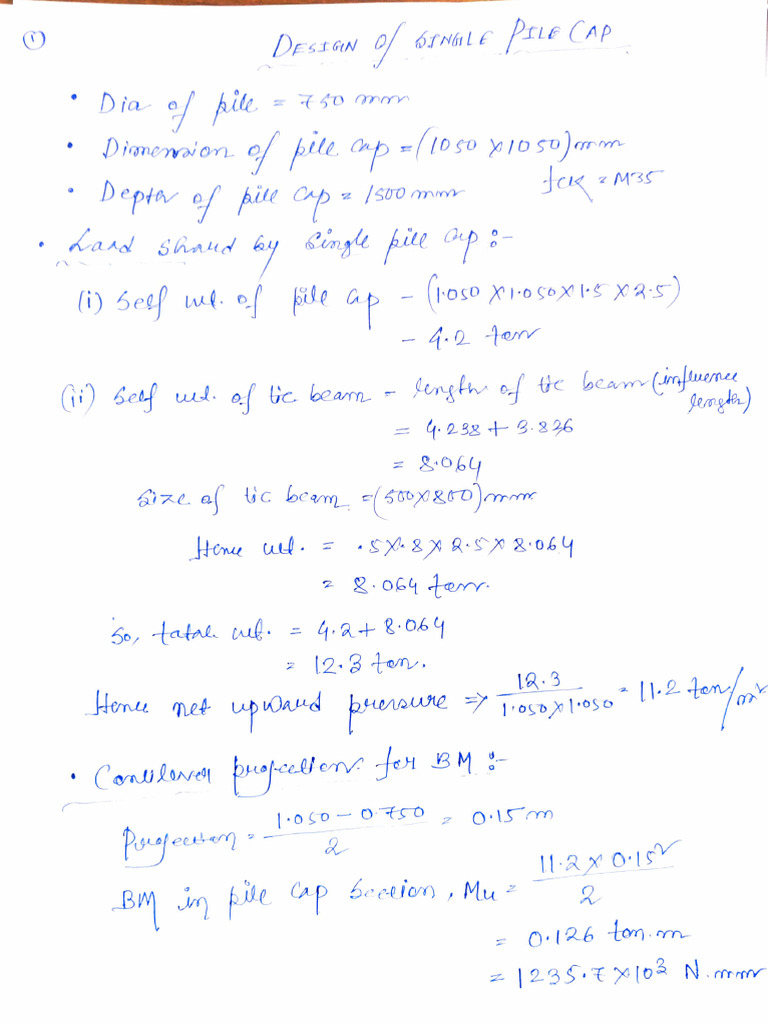 ①
DESIGN Of SINGLE PILE CAP
• Dia of pile = 750 mm
• Dimension of pile cap = (1050 X 1050) mm
• Depth of pile cap = 1500 mm fck = M35
• Load shared by single pile cap :-
(i) Self wt. of pile cap - (1.050 X 1.050 X 1.5 X 2.5)
- 4.2 ton
(ii) Self wt. of tie beam - length of tie beam (influence length)
= 4.238 + 3.826
= 8.064
Size of tie beam = (500 X 800) mm
Hence wt. = .5 X .8 X 2.5 X 8.064
= 8.064 ton.
So, total wt. = 4.2 + 8.064
= 12.3 ton.
Hence net upward pressure => 12.3 / 1.050 X 1.050 = 11.2 ton/m²
• Cantilever projection for BM :-
Projection = 1.050 - 0.750 / 2 = 0.15 m
BM in pile cap section, Mu = 11.2 X 0.15² / 2
= 0.126 ton.m
= 1235.7 X 10³ N.mm